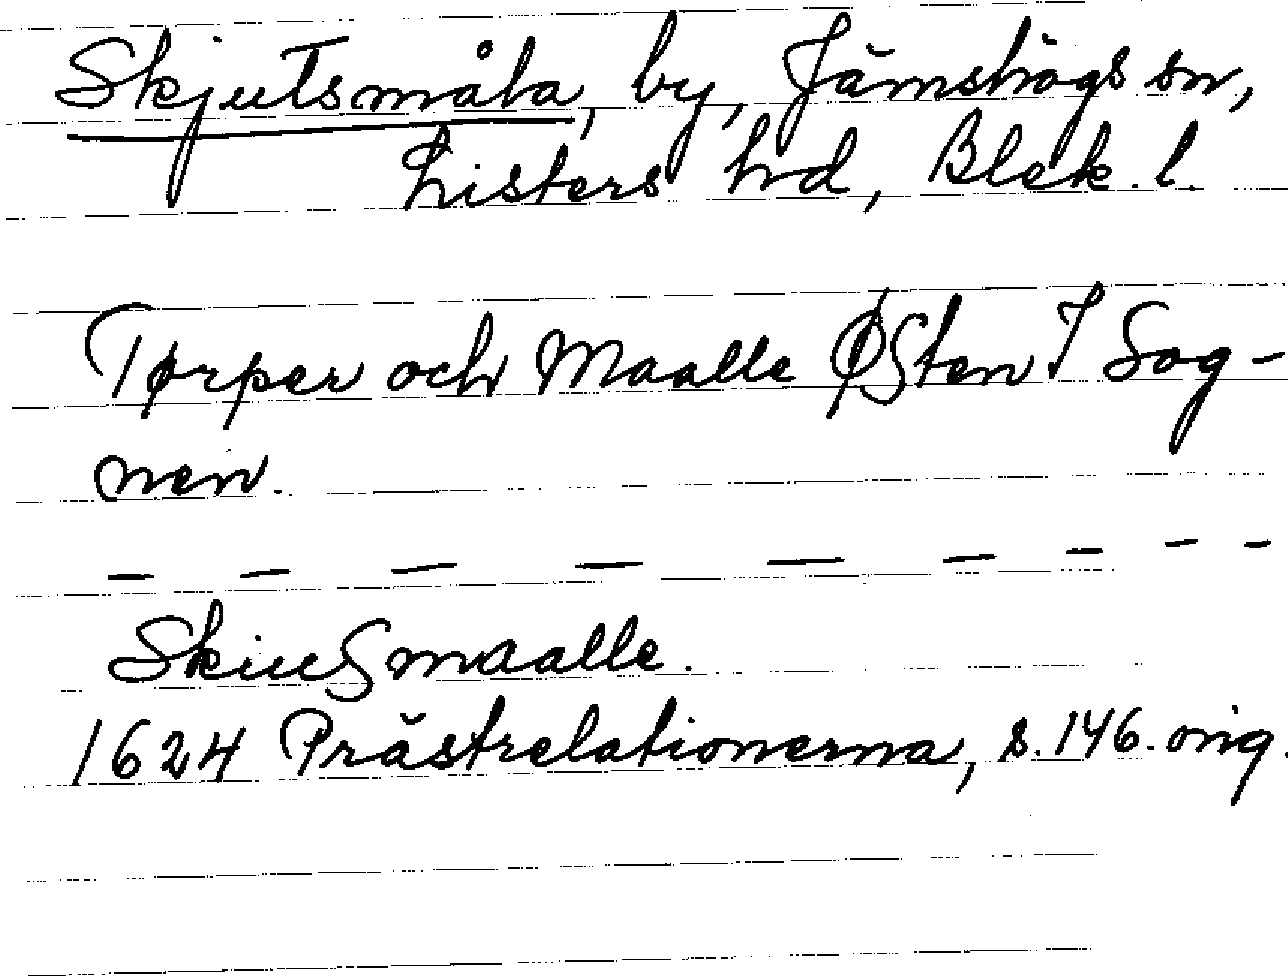 Skjutsmåla, by, Jämshögs sn,
Listers hd, Blek. l.
Tørper och Maalle ØSten I Sog-
nen.
— — — — — — — — —
SkiuSmaalle.
1624 Prästrelationerna, s. 146. orig.